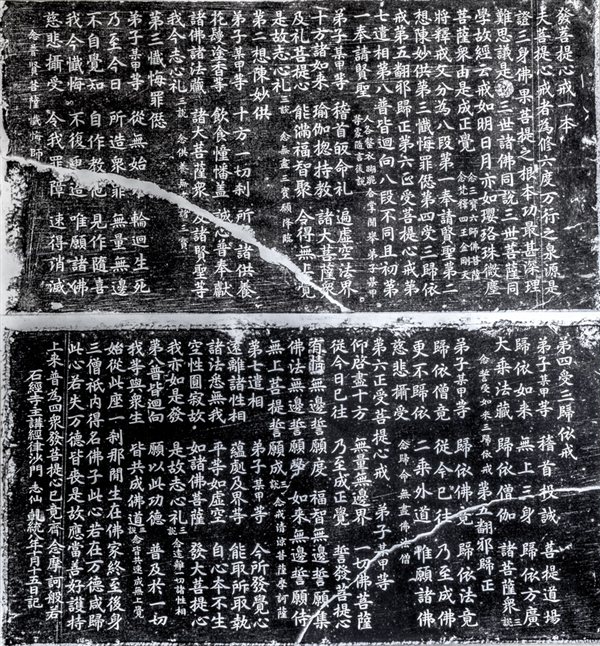 發菩提心戒一本
夫菩提心戒者為修六度万行之泉源是
證三身佛果菩提之根本功最甚深理
難思議是以三世諸佛同說三世菩薩同
學故經云戒如明日月亦如瓔珞珠微塵
菩薩衆由是成正覺 念三寶六師佛菩薩 念梵釋四王金剛天
將釋戒文分為八段第一奉請賢聖第二
想陳妙供第三懺悔罪愆第四受三歸依
戒第五翻邪歸正第六正受菩提心戒第
七遣相第八普皆迴向八段不同且初第
一奉請賢聖 人各整衣胡跪合掌同舉 弟子某甲等 隨言後說
弟子某甲等 稽首皈命礼 遍虛空法界
十方諸如来 瑜伽揔持教 諸大菩薩衆
及礼菩提心 能滿福智聚 令得無上覺
是故志心礼 三說 念無盡三寶願降臨
第二想陳妙供
弟子某甲等 十方一切刹 所有諸供養
花鬘塗香等 飲食幢幡蓋 誠心普奉獻
諸佛諸法藏 諸大菩薩衆 及諸賢聖等
我今志心礼 三說 念供養 三寶
第三懺悔罪愆
弟子某甲等 從無始 輪迴生死
乃至今日 所造衆罪 無量無邊
不自覺知 自作教他 見作随喜
我今懺悔 不復更造 唯願諸佛
慈悲攝受 令我罪障 速得消滅
念普賢菩薩懺悔師
第四受三歸依戒
弟子某甲等 稽首投誠 菩提道場
歸依如来 無上三身 歸依方廣
大乘法藏 歸依僧伽 諸菩薩衆 三說
念誓後如来三歸依戒 第五翻邪歸正
弟子某甲等 歸依佛竟 歸依法竟
歸依僧竟 從今已往 乃至成佛
更不歸依 二乘外道 惟願諸佛
慈悲攝受 念歸命無盡佛法僧
第六正受菩提心戒 弟子某甲等
仰啓盡十方 無量無邊界 一切佛菩薩
從今日已往 乃至成正覺 誓發菩提心
有情無邊誓願度 福智無邊誓願集
佛法無邊誓願學 如来無邊誓願侍
無上菩提誓願成 三說 念戒清涼菩薩摩訶薩
第七遣相 弟子某甲等 今所發覺心
遠離諸性相 蘊處及界等 能取所取執
諸法悉無我 平等如虛空 自心本不生
空性圓寂故 如諸佛菩薩 發大菩提心
我亦如是發 是故志心礼 三說 念遠離一切諸性相
第八普皆迴向 願以此功德 普及於一切
我等與衆生 皆共成佛道 三說 念皆共速成無上覺
始從此座一刹那間生在佛家終至後身
三僧祇内得名佛子此心若在万德咸歸
此心若失万德皆喪是故應當善好護持
上来普為四衆發菩提心已竟齊念摩訶般若
石經寺主講經律沙門 志仙 乹統八年十月十五日記